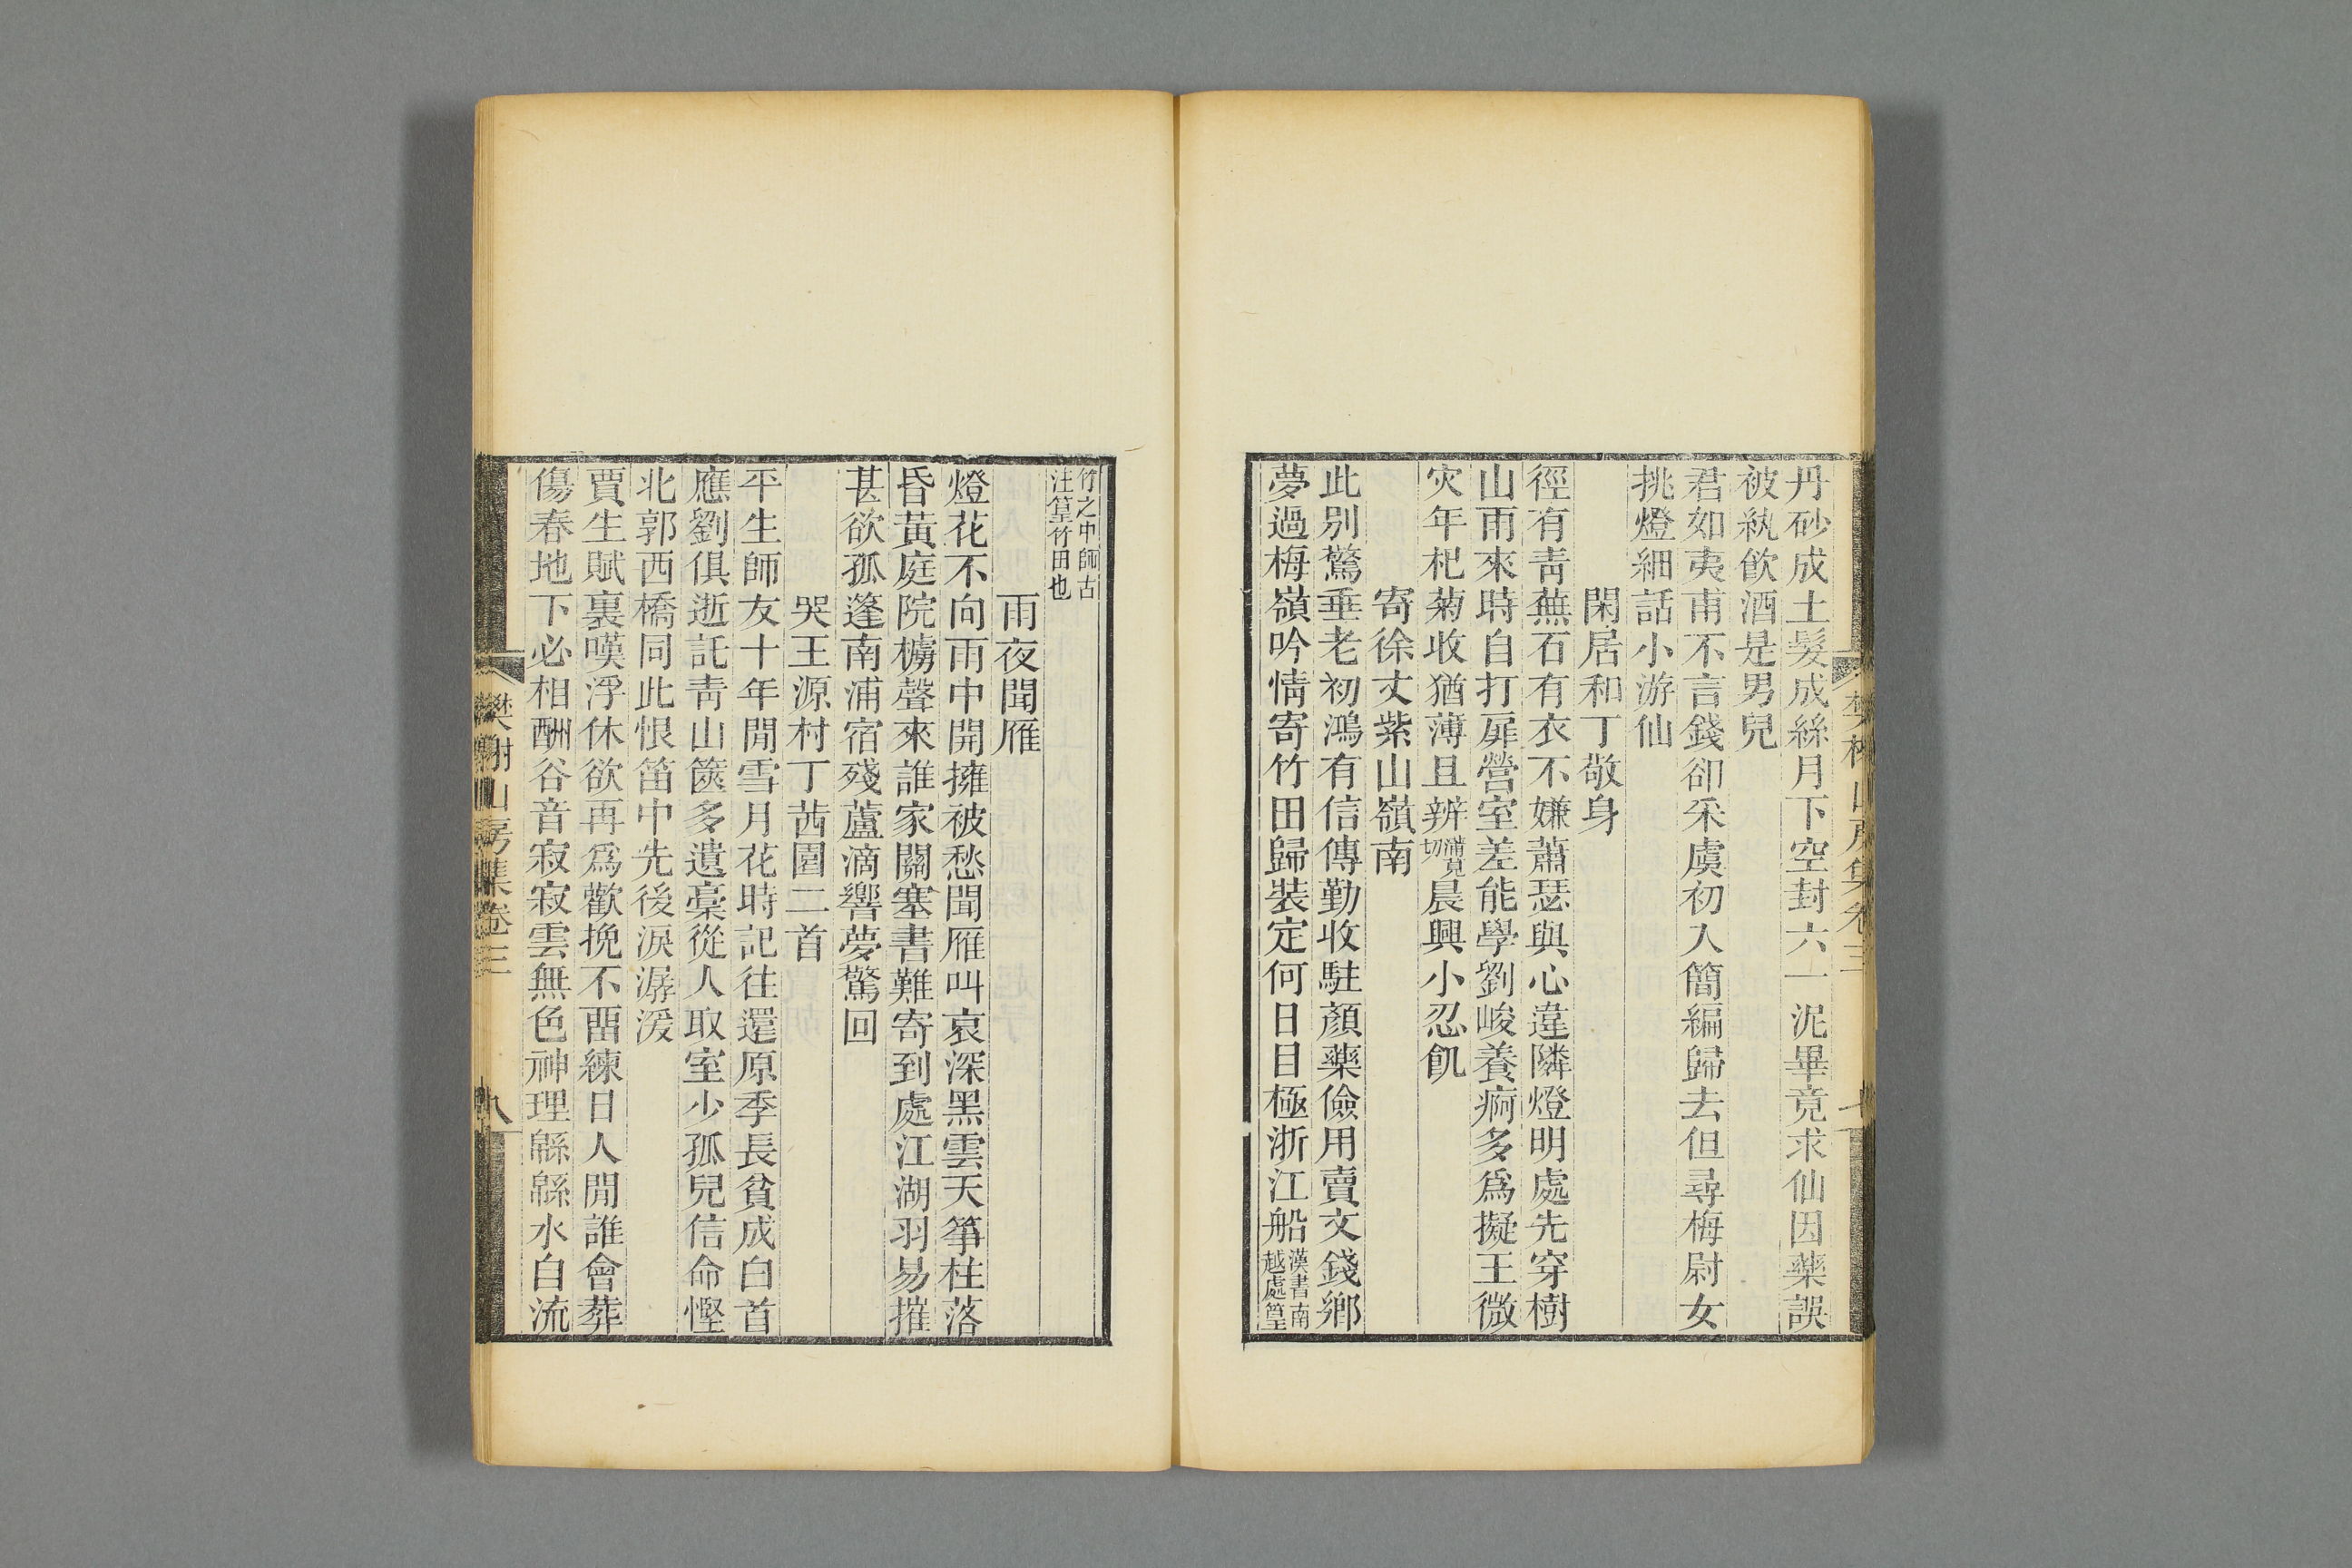 丹砂成土髮成絲月下空封六一泥畢竟求仙因藥誤
被紈飲酒是男兒
君如夷甫不言錢卻采虞初入簡編歸去但尋梅尉女
挑燈細話小游仙
閑居和丁敬身
徑有靑蕪石有衣不嫌蕭瑟與心違隣燈明處先穿樹
山雨來時自打扉營室差能學劉峻養痾多爲擬王微
灾年杞菊收猶薄且辨蒲莧切晨興小忍飢
寄徐丈紫山嶺南
此別驚垂老初鴻有信傳勤收駐顏藥儉用賣文錢鄉
夢過梅嶺吟情寄竹田歸裝定何日目極浙江船漢書南越處篁
樊榭山房集卷三
七
竹之中師古注篁竹田也
雨夜聞雁
燈花不向雨中開擁被愁聞雁叫哀深黑雲天箏柱落
昏黃庭院櫓聲來誰家關塞書難寄到處江湖羽易摧
甚欲孤篷南浦宿殘蘆滴響夢驚回
哭王源村丁茜園二首
平生師友十年閒雪月花時記往還原季長貧成白首
應劉俱逝託靑山篋多遺稾從人取室少孤兒信命慳
北郭西橋同此恨笛中先後淚潺湲
賈生賦裏嘆浮休欲再爲歡挽不畱練日人閒誰會葬
傷春地下必相酬谷音寂寂雲無色神理緜緜水自流
樊榭山房集卷三
八